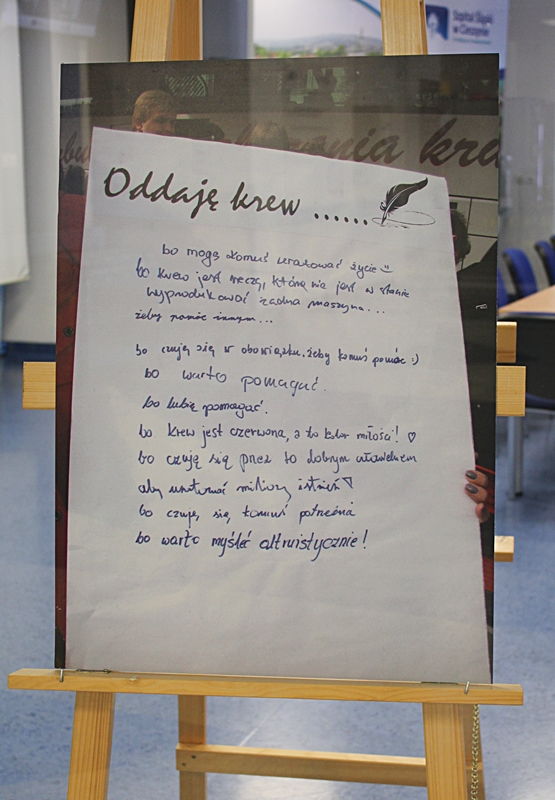 Szpital Śląski
w Cieszynie
Oddaję krew ......
bo mogę komuś uratować życie :)
bo krew jest rzeczą, której nie jest w stanie
wyprodukować żadna maszyna...
żeby pomóc innym...
bo czuję się w obowiązku, żeby komuś pomóc :)
bo warto pomagać.
bo lubię pomagać.
bo krew jest czerwona, a to kolor miłości! ♡
bo czuję się przez to dobrym człowiekiem
aby uratować miliony istnień
bo czuję się komuś potrzebna
bo warto myśleć altruistycznie!